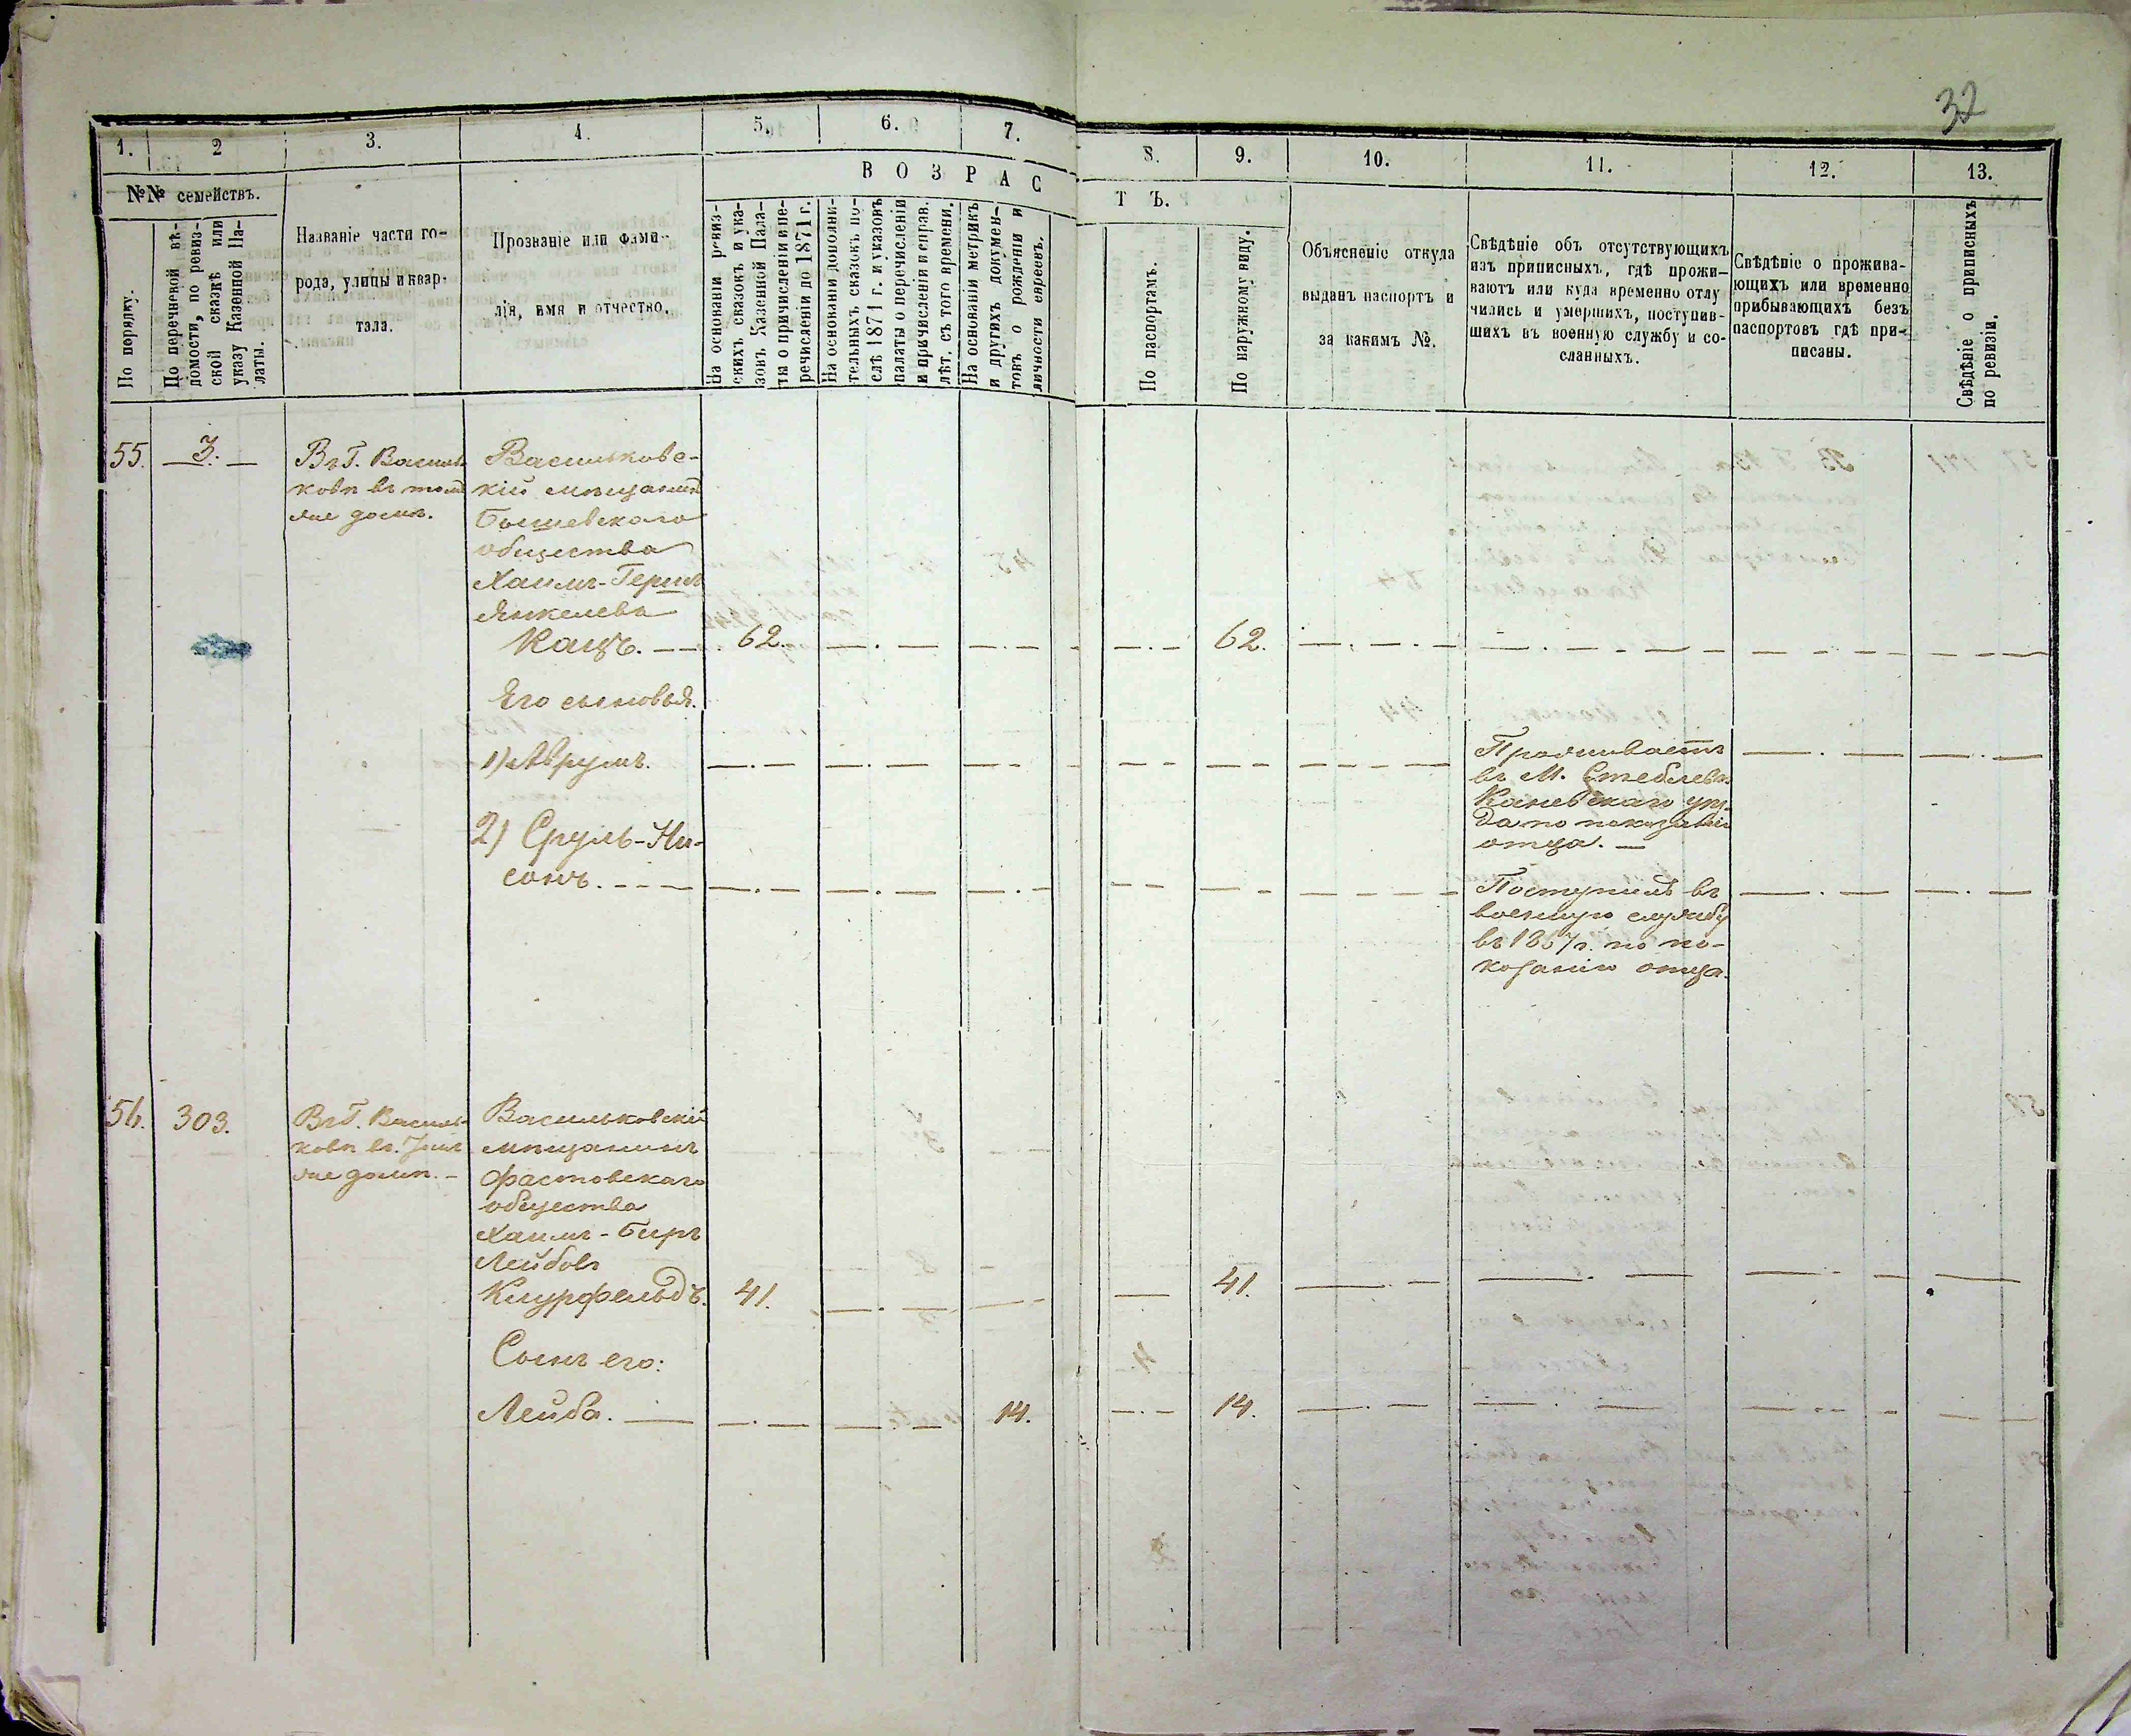 32
1. 2 3. 4. 5. 6. 7. 8. 9. 10. 11. 12. 13.
№№ семействъ.
По порядку.
По перечневой вѣ-
домости, по ревиз-
ской сказкѣ или
указу Казенной Па-
латы.
Названіе части го-
рода, улицы и квар-
тала.
Прозваніе или фами-
лія, имя и отчество.
ВОЗРАСТЪ.
На основаніи ревиз-
скихъ сказокъ и ука-
зовъ Казенной Пала-
ты о причисленіи и пе-
речисленіи до 1871 г.
На основаніи дополни-
тельныхъ сказокъ по-
слѣ 1871 г. и указовъ
палаты о перечисленіи
и причисленіи и справ.
лѣт. съ того времени.
На основаніи метрикъ
и другихъ докумен-
товъ о рожденіи и
личности евреевъ.
По паспортамъ.
По наружному виду.
Объясненіе откуда
выданъ паспортъ и
за какимъ №.
Свѣдѣніе объ отсутствующихъ
изъ приписныхъ, гдѣ прожи-
ваютъ или куда временно отлу
чились и умершихъ, поступив-
шихъ въ военную службу и со-
сланныхъ.
Свѣдѣніе о прожива-
ющихъ или временно
прибывающихъ безъ
паспортовъ гдѣ при-
писаны.
Свѣдѣніе о приписныхъ
по ревизіи.
55. 3.
Въ Г. Василь-
ковѣ въ томъ
же домѣ.
Васильковс-
кій мѣщанинъ
общества
Хаимъ-Гершъ
Янкелевъ
Кацъ. 62. 62.
Его сыновья.
1) Аврумъ.
Проживаетъ
въ М. Стеблевѣ
Каневскаго уѣз-
да по показанію
отца.
2) Сруль-Ни-
сонъ.
Поступилъ въ
военную службу
въ 1867 г. по по-
казанію отца.
56. 303.
Въ Г. Василь-
ковѣ въ
же домѣ.
Васильковскій
мѣщанинъ
Фастовскаго
общества
Хаимъ-Беръ
Лейбовъ
41. 41.
Сынъ его:
Лейба. 14. 14.